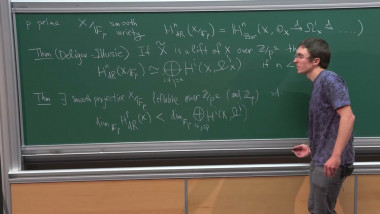 p prime X/𝔽_p smooth H^n_dR(X/𝔽_p) = ℍ^n_Zar(X, O_X →^d Ω^1_X →^d ...)
variety
Thm (Deligne-Illusie) If X̃ is a lift of X over ℤ/p²
H^n_dR(X/𝔽_p) ≃ ⊕ H^i(X, Ω^j) if n <
Thm ∃ smooth projective X/𝔽_p liftable over ℤ/p² (and ℤ_p) st
dim_𝔽_p H^n_dR(X) < dim_𝔽_p ⊕ H^i(X, Ω^j)